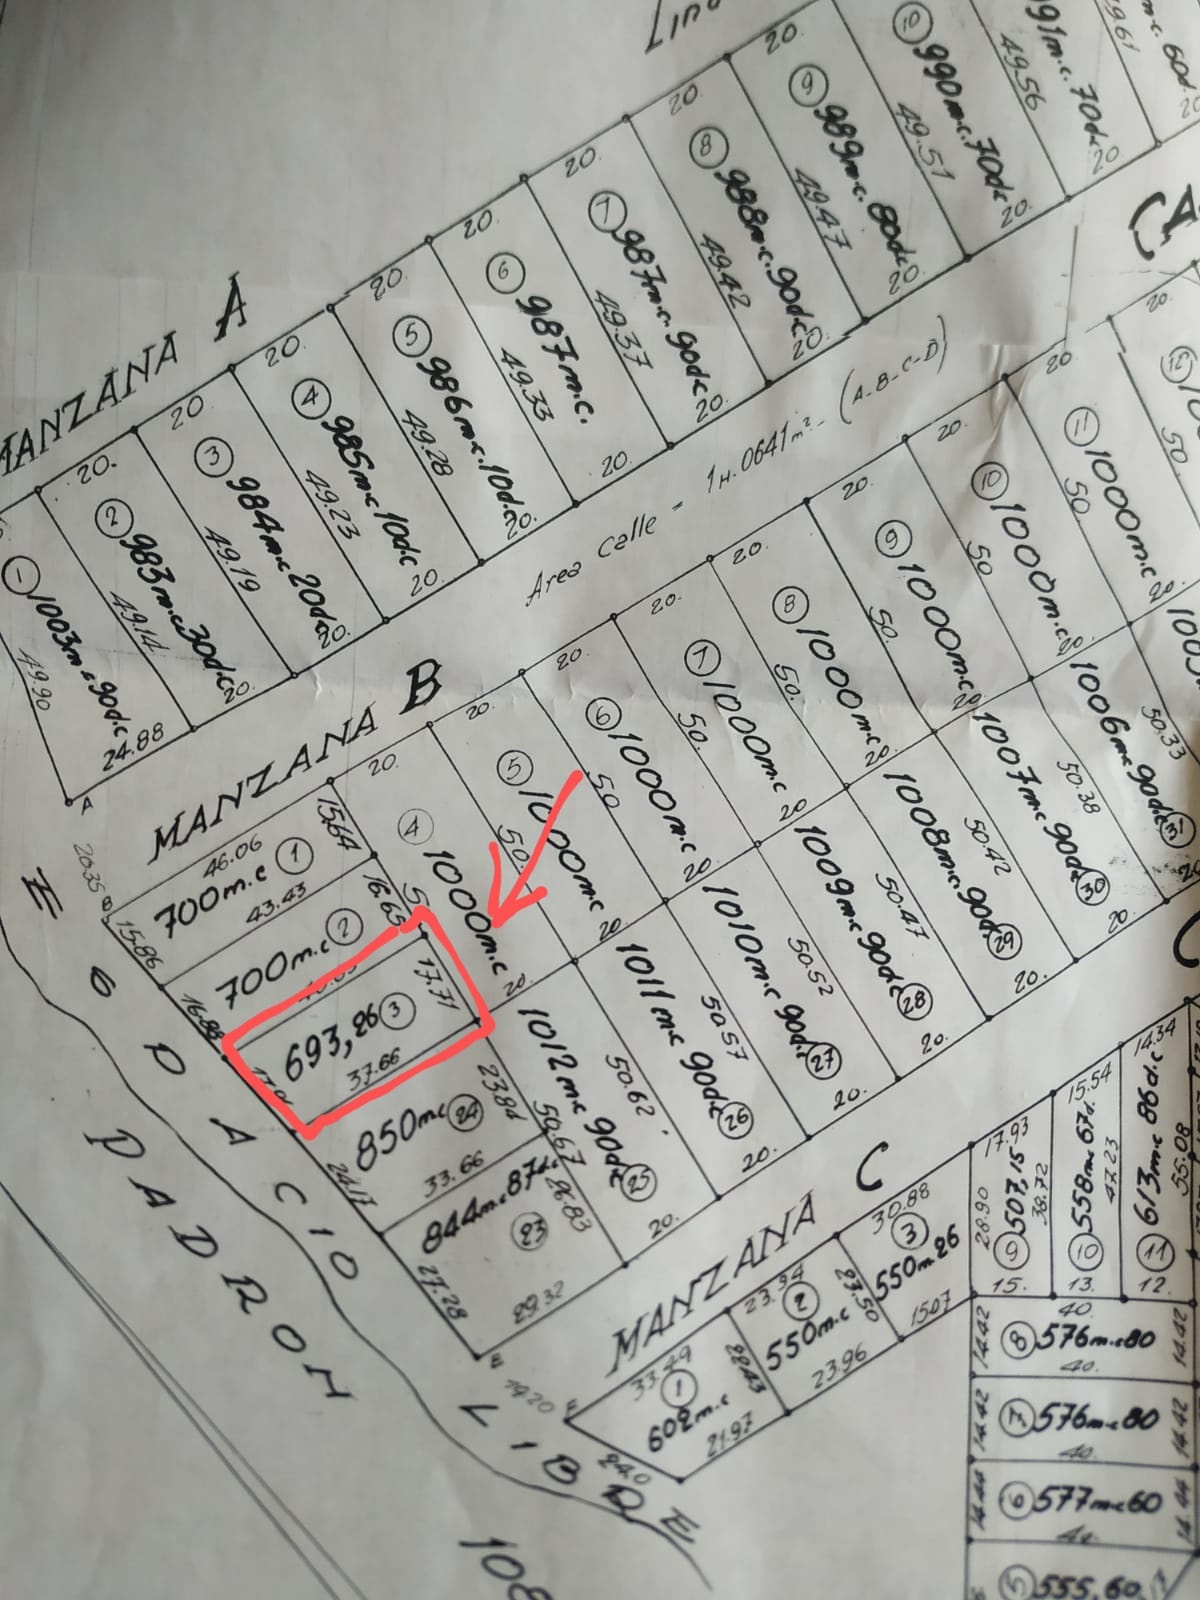 MANZANA A
20.
20.
20.
20.
20.
20.
20.
20.
20.
1 1003m.c 90d.c
49.90
24.88
A
2 983m.c 30d.c
49.14
20.
3 984m.c 20d.c
49.19
20.
4 985m.c 10d.c
49.23
20.
5 986m.c. 10d.c
49.28
20.
6 987m.c.
49.33
20.
7 987m.c. 90d.c
49.37
20.
8 988m.c. 90d.c
49.42
20.
9 989m.c. 80d.c
49.47
20.
10 990m.c. 70d.c
49.51
20.
991m.c. 70d.c
49.56
20
49.61
60d.
Area Calle = 1H.0641m² - (A-B-C-D)
MANZANA B
20.35
B
46.06
15.64
700m.c 1
15.86
43.43
16.65
700m.c 2
16.88
17.71
693,26 3
37.66
850m.c 24
23.81
24.17
33.66
844m.c 87d.c
23
26.83
27.28
29.32
E
20.
20.
20.
20.
20.
20.
20.
20
20.
4 1000m.c
20.
5 1000m.c
50.
20
6 1000m.c
50
20
7 1000m.c
50.
20
8 1000m.c
50.
20.
9 1000m.c
50.
20
10 1000m.c
50
20.
11 1000m.c
50.
20.
12
50.
1012m.c 90d.c 25
50.67
20.
1011m.c 90d.c 26
50.62
20.
1010m.c 90d.c 27
50.57
20.
1009m.c 90d.c 28
50.52
20.
1008m.c. 90d.c 29
50.47
20.
1007m.c 90d.c 30
50.42
20.
1006m.c 90d.c 31
50.38
50.33
MANZANA C
19.20
33.49
1
602m.c
21.97
24.0
22.43
23.94
2
550m.c
23.96
23.50
30.88
3
550m.26
15.07
17.93
28.90
9 507,15
38.72
15.
15.54
10 558m.c 67d.
47.23
13.
14.34
11 613m.c 86d.c
55.08
12.
40.
14.42
8 576m.c 80
14.42
40.
14.42
7 576m.c 80
14.42
40.
14.44
6 577m.c 60
14.44
44.
5 555,60
ESPACIO LIBRE
PADRON
108